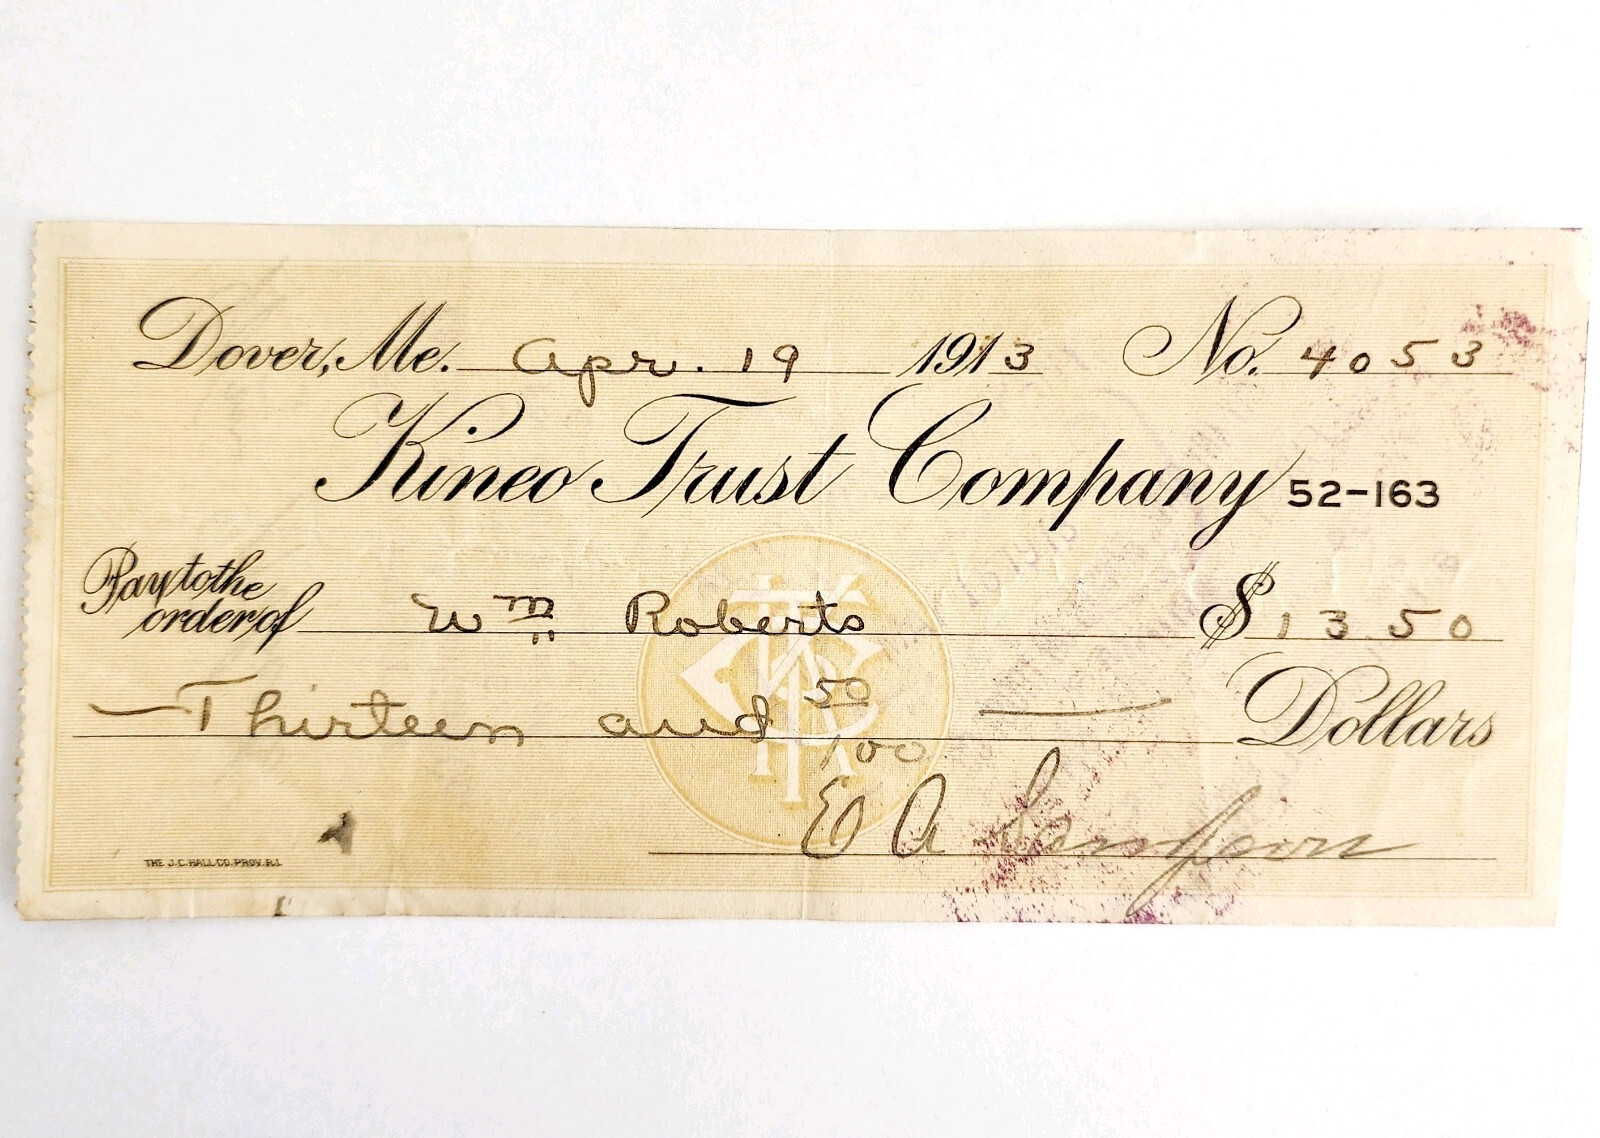 Dover, Me. Apr. 19 1913 No. 4053
Kineo Trust Company 52-163
Pay to the
order of Wm Roberts $ 13 50
Thirteen and 50/100 Dollars
E A
THE J.C. HALL CO. PROV. R.I.